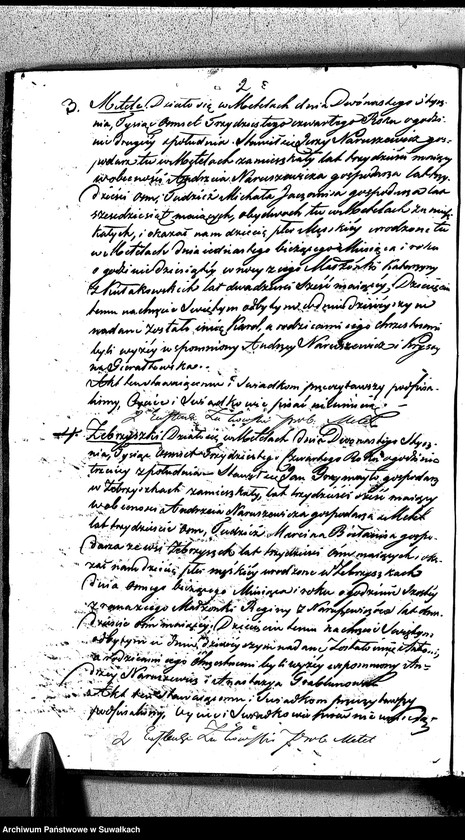 2
3. Metele. Działo się w Metelach dnia Dwónastego Stycz-
nia, Tysiąc Ośmset Trzydziestego czwartego Roku o godzi-
nie drugiéy z południa. Stawił się Jerzy Naruszewicz gos-
podarz tu w Metelach zamieszkały lat trzydzieści maiący
w obecności Andrzeia Naruszewicza gospodarza lat trzy-
dzieści ośm, tudzież Michała gospodarza lat
sześdziesiąt maiących, obydwóch tu w Metelach zamiesz-
kałych, i okazał nam dziecię płci Męzkiéy urodzone tu
w Metelach dnia iedenastego bieżącego Miesiąca i roku
o godzinie dziesiątéy w nocy z iego Małżonki Katarzyny
z lat dwadzieścia sześć maiącéy. Dziecięciu
temu na chrzcie Świętym odbytym w dniu dzisieyszym
nadane zostało imię Karol, a rodzicami iego chrzestnemi
byli wyżéy wspomniony Andrzey Naruszewicz i Krysty-
na
Akt ten stawaiącemu i Świadkom przeczytawszy podpisa-
liśmy, Oyciec i Świadkowie pisać nieumieią.
prob. Metel
4. Zebryszki. Działo się w Metelach dnia Dwónastego Stycz-
nia, Tysiąc Ośmset Trzydziestego czwartego Roku o godzinie
trzeciéy z południa. Stawił się Jan gospodarz
w Zebryszkach zamieszkały, lat trzydzieści sześć maiący
w obecności Andrzeia Naruszewicza gospodarza z Metel
lat trzydzieście ośm, Tudzież Marcina gospo-
darza ze wsi Zebryszek lat trzydzieści ośm maiących, oka-
zał nam dziecię płci męzkiéy urodzone w Zebryszkach
dnia ósmego bieżącego Miesiąca i roku o godzinie szóstéy
z rana z iego Małżonki Reginy z lat dwa-
dzieścia ośm maiącéy. Dziecięciu temu na chrzcie Świętym
odbytym w dniu dzisieyszym nadane zostało imię
a rodzicami iego Chrzestnemi byli wyżéy wspomniony An-
drzéy Naruszewicz i Anastazya
Akt ten stawaiącemu i Świadkom przeczytawszy
podpisaliśmy, Oyciec i Świadkowie pisać nie umieią
prob. Metel
Archiwum Państwowe w Suwałkach